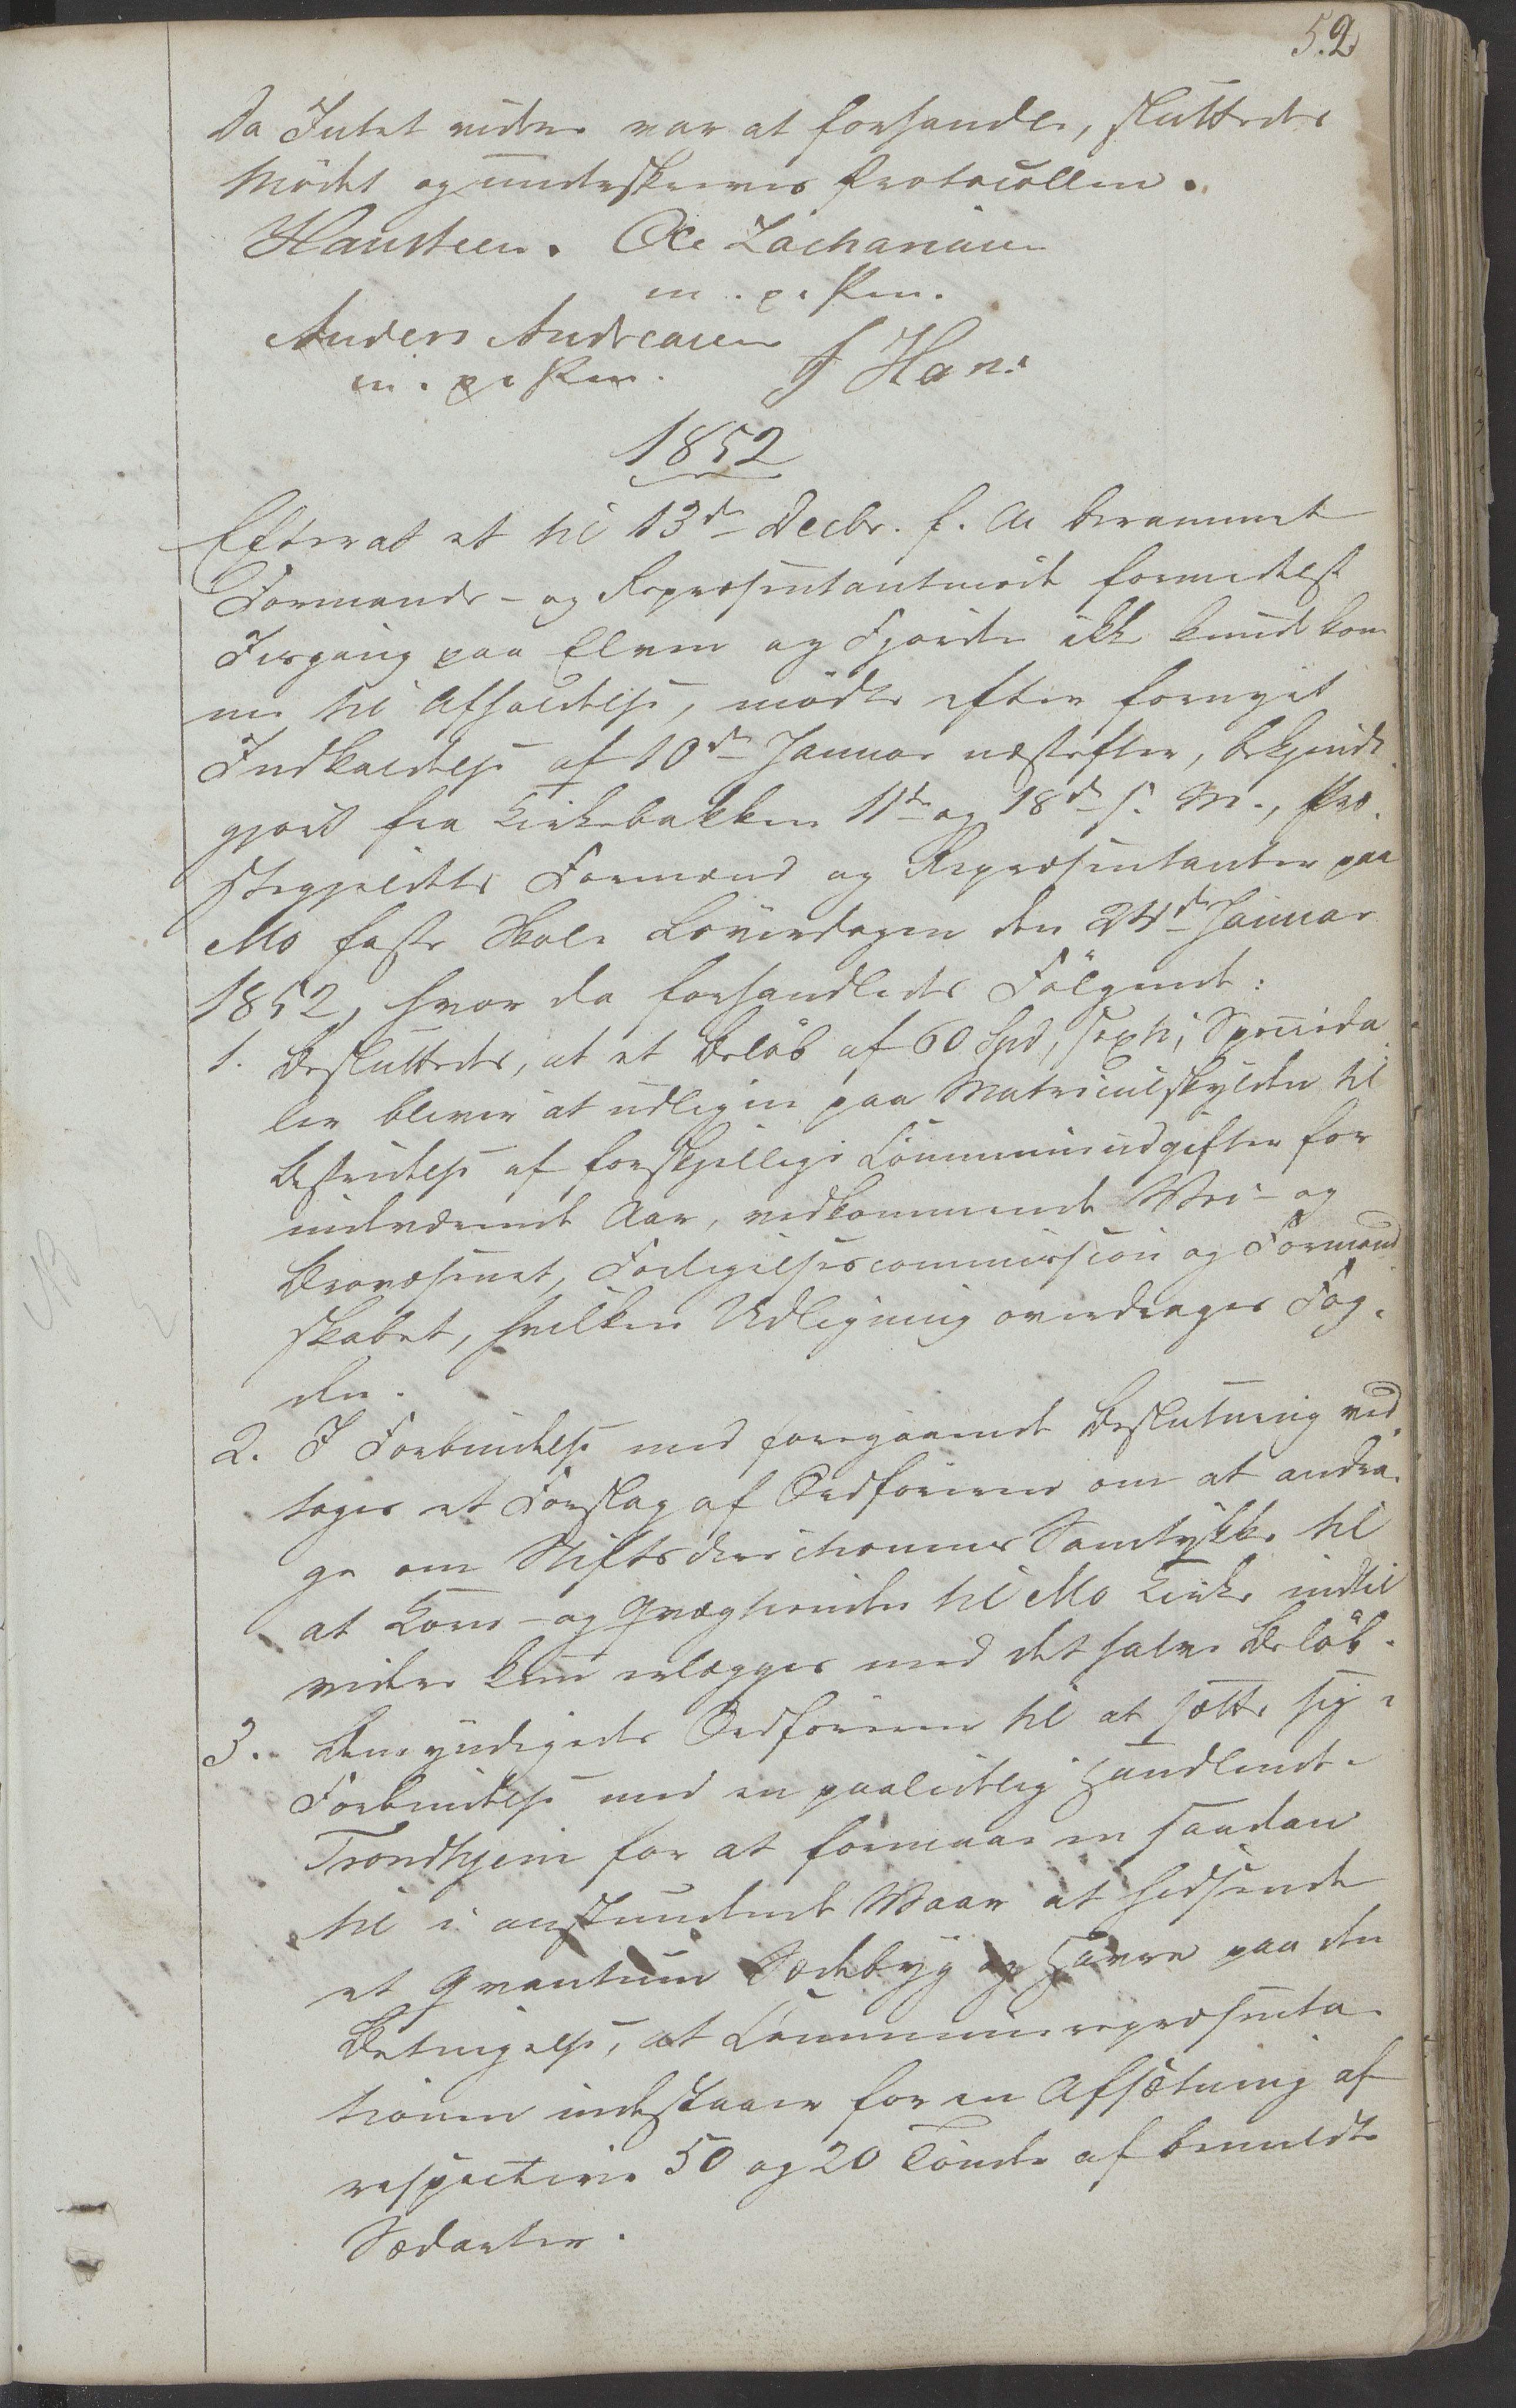 52
Da Intet videre var at forhandle, sluttedes
Mødet og underskreves Protocollen.
Hansteen. Ole Zachariasen
m. p. Pen.
Anders Andreasen
m. p. Pen. J Han:
1852
Efterat et til 13de Decbr. f. A. berammet
Formands- og Repræsentantmøde formedelst
Iisgang paa Elven og Fjorden ikke kunde kom
me til Afholdelse, mødte efter fornyet
Indkaldelse af 10de Januar næstefter, bekjendt
gjort fra Kirkebakken 11te og 18de s. M., Præ-
stegjeldets Formænd og Repræsentanter paa
Mo faste Skole Løverdagen den 24de Januar
1852, hvor da forhandledes Følgende:
1. Besluttedes, at et Beløb af 60 Spd, sexti, Speciada
ler bliver at udligne paa Matriculskylden til
Bestridelse af forskjellige Communeudgifter for
indeværende Aar, vedkommende Vei- og
Brovæsenet, Forligelsescommission og Formand
skabet, hvilken Udligning overdrages Fog-
den.
2. I Forbindelse med foregaaende Beslutning ved
toges et Forslag af Ordføreren om at andra-
ge om Stiftsdirectionens Samtykke til
at Korn- og Qvægtienden til Mo Kirke indtil
videre kun erlægges med det halve Beløb.
3. Bemyndigedes Ordføreren til at sætte sig i
Forbindelse med en paalidelig Handlende i
Trondhjem for at formaae en saadan
til i anstundende Vaar at hidsende
et Qvantum Sædebyg og Havre paa den
Betingelse, at Communerepræsenta
tionen indestaaer for en Afsætning af
respective 50 og 20 Tønder af bemeldte
Sædarter.